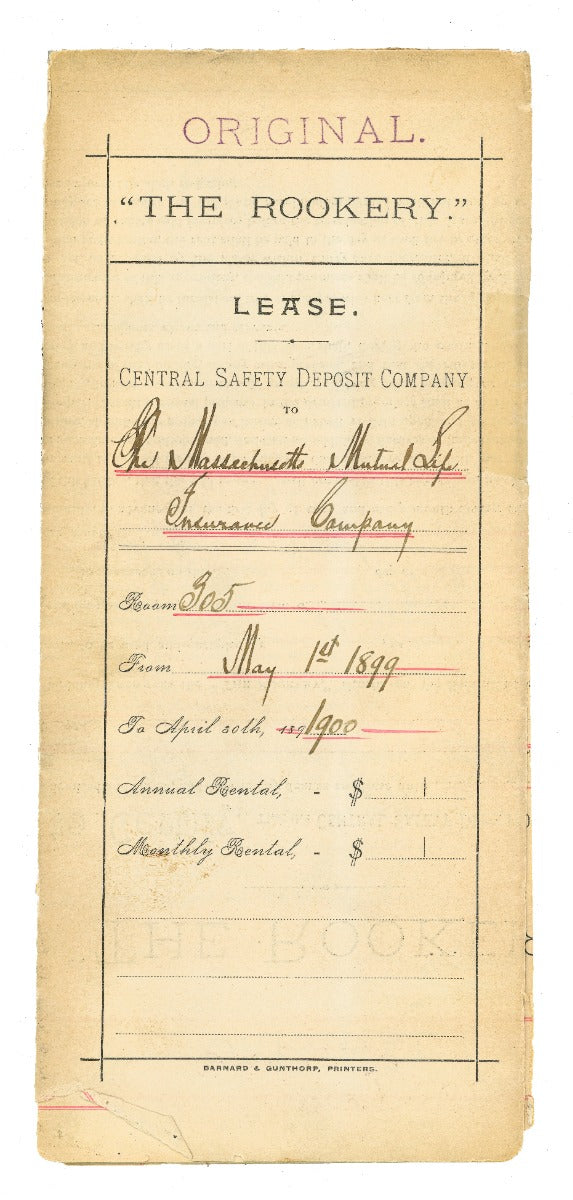 ORIGINAL.
"THE ROOKERY."
LEASE.
CENTRAL SAFETY DEPOSIT COMPANY
TO
The Massachusetts Mutual Life
Insurance Company
Room 305
From May 1st 1899
To April 30th, 189 1900
Annual Rental, - $
Monthly Rental, - $
THE ROOKE
BARNARD & GUNTHORP, PRINTERS.